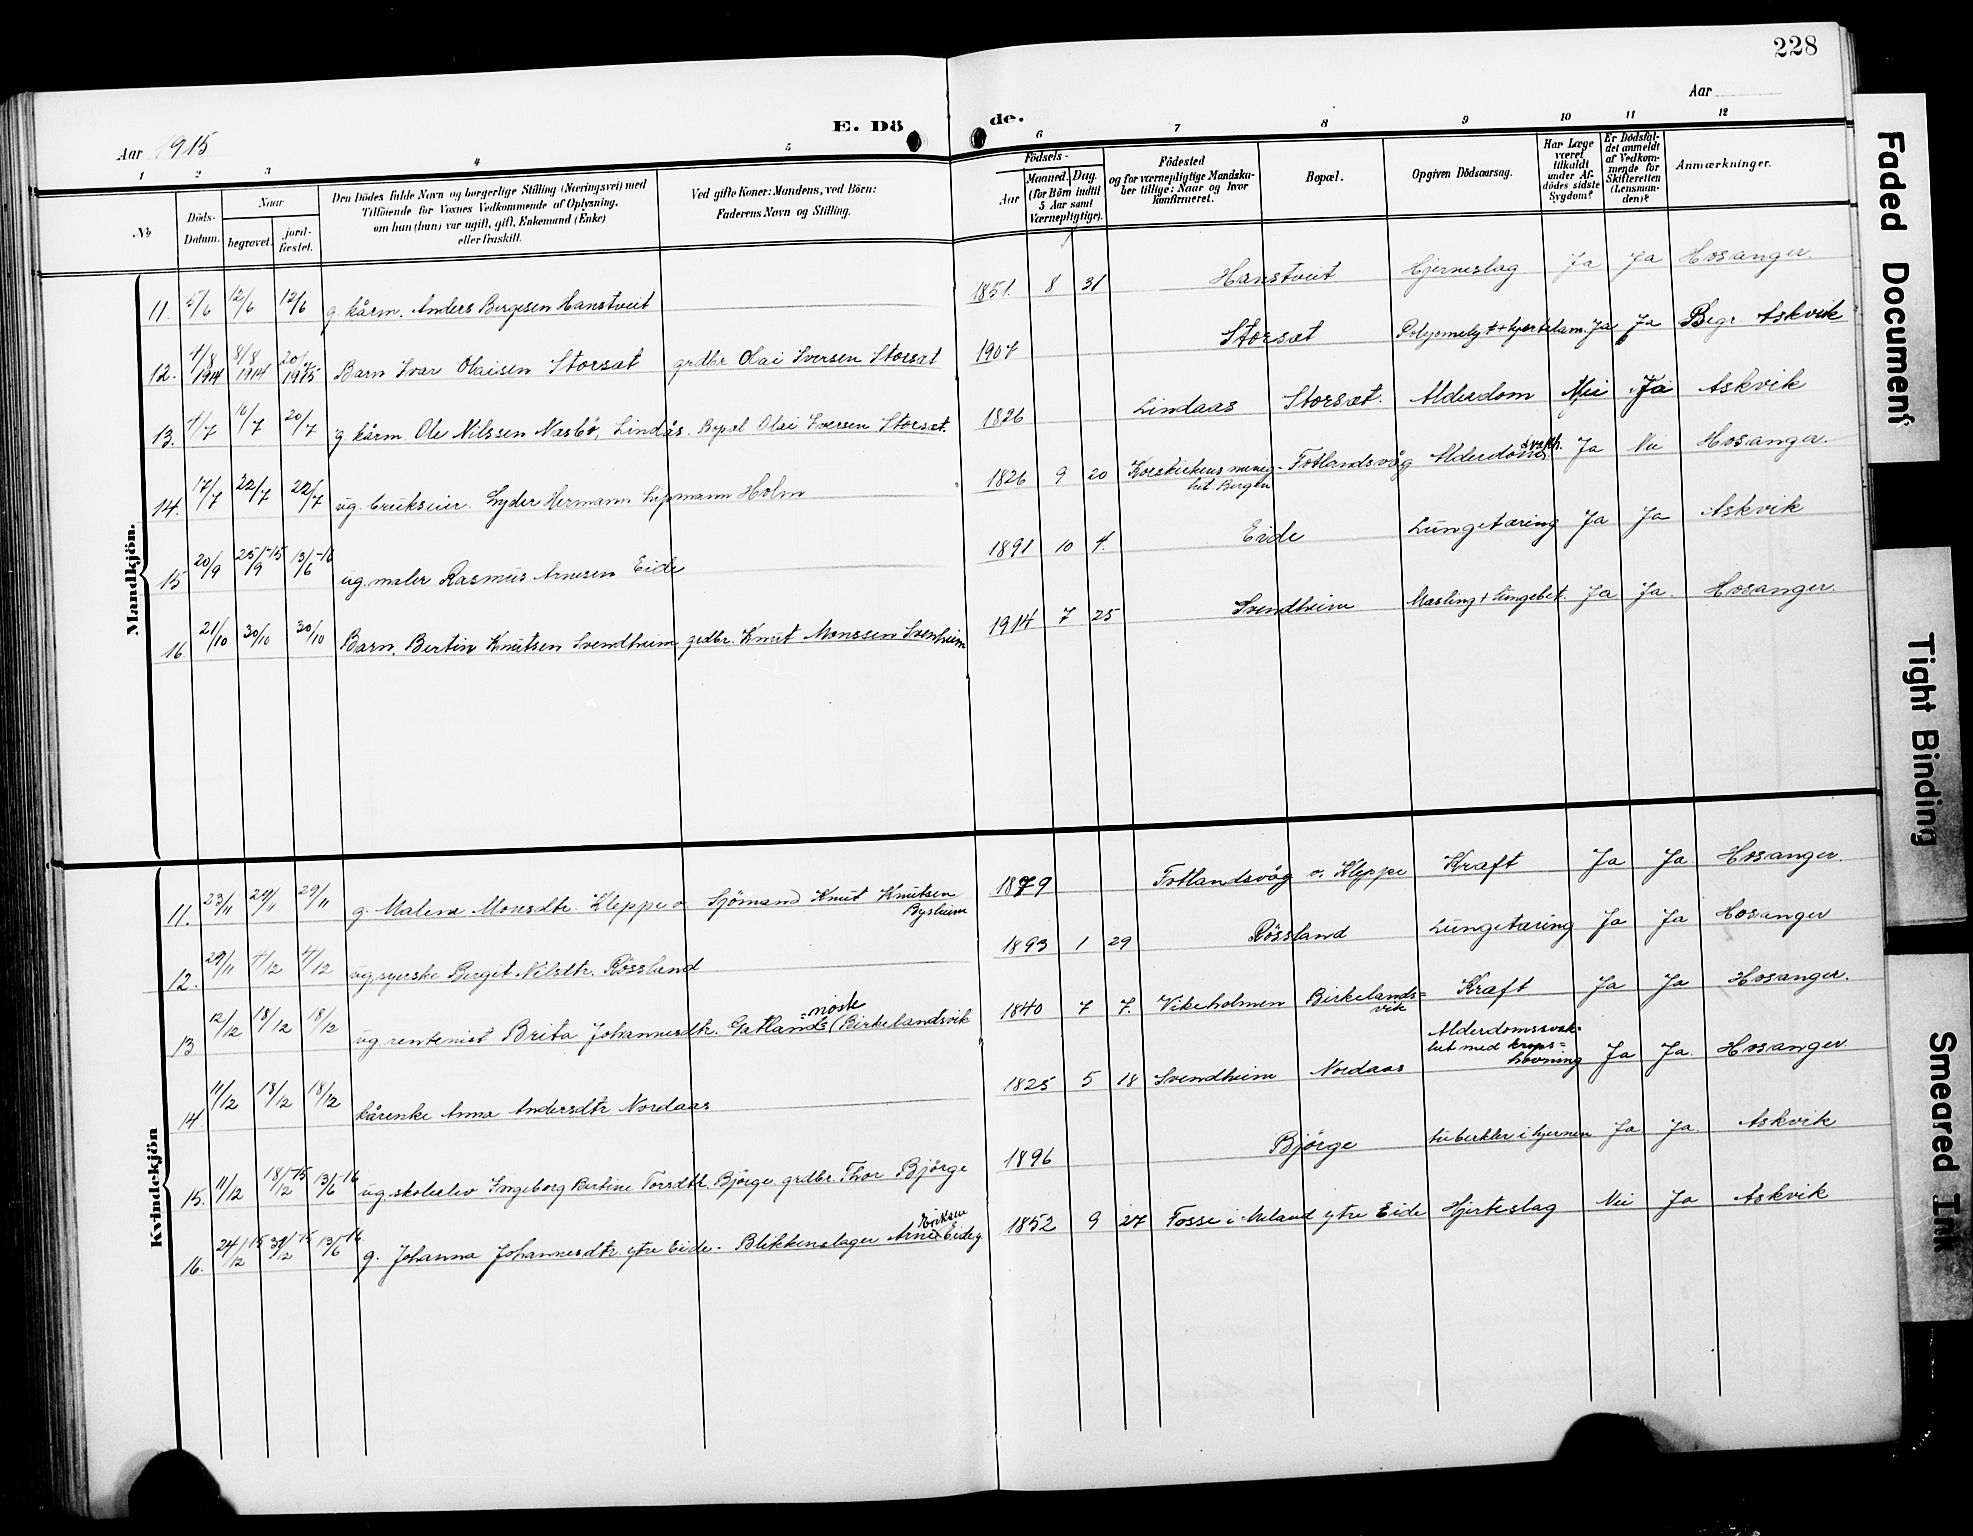 228
Aar
Aar 1915
E. Döde.
1 2 3 4 5 6 7 8 9 10 11 12
No
Döds-Datum.
Naar
begravet.
jord-fæstet.
Den Dödes fulde Navn og borgerlige Stilling (Næringsvei) med
Tilföiende for Voxnes Vedkommende af Oplysning,
om han (hun) var ugift, gift, Enkemand (Enke)
eller fraskilt.
Ved gifte Koner: Mandens, ved Börn:
Faderens Navn og Stilling.
Födsels-
Aar
Maaned. Dag.
(for Börn indtil
5 Aar samt
Værnepligtige).
Födested
og for værnepligtige Mandskaber tillige: Naar og hvor
konfirmeret.
Bopæl.
Opgiven Dödsaarsag.
Har Læge
været
tilkaldt
under Afdödes sidste
Sygdom?
Er Dödsfaldet anmeldt
af Vedkommende for
Skifteretten
(Lensmanden)?
Anmærkninger.
Mandkjön.
11. 5/6 12/6 12/6 g. kårm. Anders Bergesen Hanstveit 1851. 8 31 Hanstveit Hjerneslag Ja Ja Hosanger.
12. 4/8 1914 8/8 1914 20/7 1915 Barn Ivar Olaisen Storsæt grdbr Olai Iversen Storsæt 1907 Storsæt Ja Ja Begr Askvik
13. 4/7 10/7 20/7 g. kårm. Ole Nilssen Nasbö, Lindås. Bopæl Olai Iversen Storsæt. 1826 Lindaas Storsæt. Alderdom Nei Ja Askvik
14. 17/7 22/7 22/7 ug. brukseier. Lyder Hermann Lipmann Holm 1826 9 20 Korskirkens menighet. Bergen Totlandsvåg Alderdomssvakh. Ja Nei Hosanger.
15 20/9 25/9-15 13/6-16 ug. maler Rasmus Arnesen Eide 1891 10 4. Eide Lungetæring Ja Ja Askvik
16. 21/10 30/10 30/10 Barn. Bertin Knutsen Svendheim grdbr. Knut Monssen Svenheim 1914 7 25 Svendheim Mæsling + lungebet. Ja Ja. Hosanger.
Kvindekjön
11. 23/11 29/11 29/11 g. Malene Monsdtr. Kleppe o. Sjömand Knut Knutsen Bysheim 1879 Totlandsvåg o. Kleppe Kraft Ja Ja Hosanger.
12. 29/11 4/12 4/12 ug. syerske Bergit Nilsdtr. Rössland 1893 1 29 Rössland Lungetæring Ja Ja Hosanger
13 12/12 18/12 18/12 ug. rentenist Brita Johannesdtr. Gatlandsnöste (Birkelandsvik 1840 7 7. Vikeholmen Birkelands=vik Kraft Ja Ja Hosanger.
14. 11/12 18/12 18/12 kårenke Anna Andersdtr Nordaas 1825 5 18 Svendheim Nordaas Alderdomssvakhet med krops=hovning Ja Ja. Hosanger.
15. 11/12 18/12-15 13/6-16 ug. skoleelev Ingeborg Bertine Torsdtr. Björge grdbr. Thor Björge 1896 Björge tuberkler i hjernen Ja Ja. Askvik
16. 24/12-15 31/12-15 13/6-16. g. Johanna Johannesdtr ytre Eide. Blikkenslager Arne Eriksen Eide y 1852 9 27 Fosse i Meland ytre Eide Hjerteslag Nei Ja Askvik
Faded Document
Tight Binding
Smeared Ink